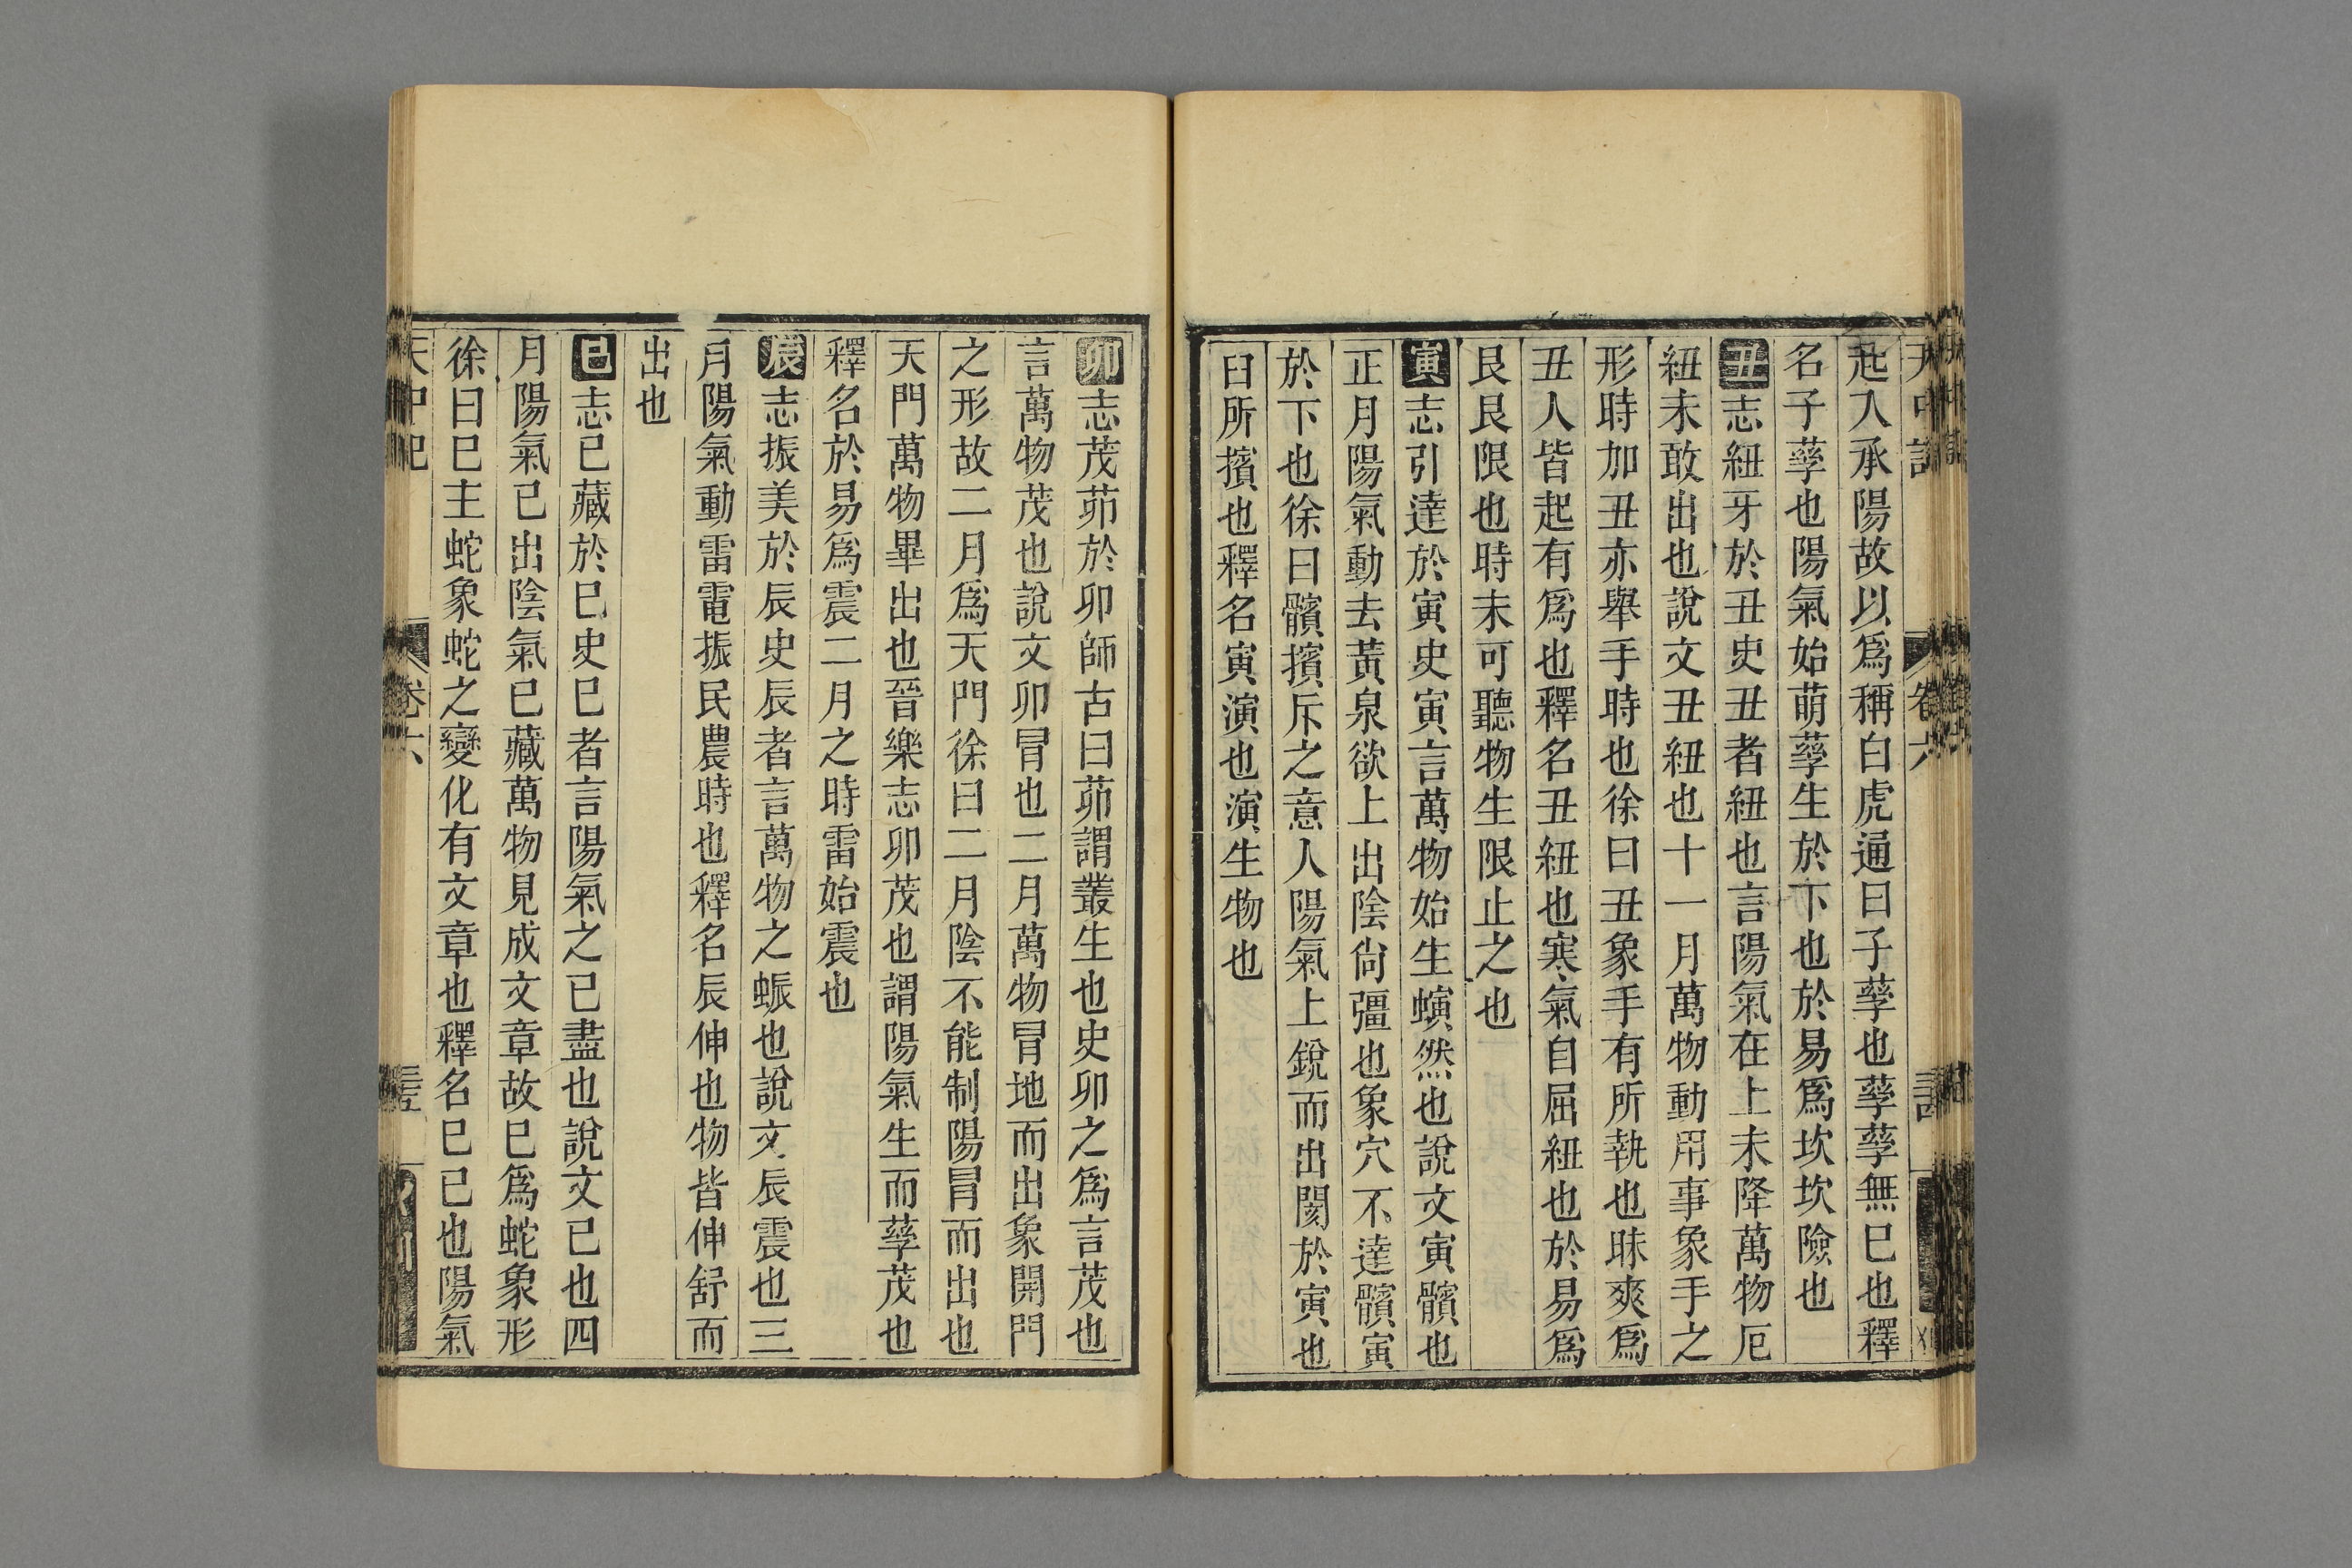 起入承陽故以爲稱白虎通曰子孳也孳孳無巳也釋
名子孳也陽氣始萌孳生於下也於易爲坎坎險也
丑志紐牙於丑史丑者紐也言陽氣在上未降萬物厄
紐未敢出也說文丑紐也十一月萬物動用事象手之
形時加丑亦舉手時也徐曰丑象手有所執也昧爽爲
丑人皆起有爲也釋名丑紐也寒氣自屈紐也於易爲
艮艮限也時未可聽物生限止之也
寅志引達於寅史寅言萬物始生螾然也說文寅髕也
正月陽氣動去黃泉欲上出陰尙彊也象穴不達髕寅
於下也徐曰髕擯斥之意人陽氣上銳而出閡於寅也
臼所擯也釋名寅演也演生物也
卯志茂茆於卯師古曰茆謂叢生也史卯之爲言茂也
言萬物茂也說文卯冐也二月萬物冐地而出象開門
之形故二月爲天門徐曰二月陰不能制陽冐而出也
天門萬物畢出也晉樂志卯茂也謂陽氣生而孳茂也
釋名於易爲震二月之時雷始震也
辰志振美於辰史辰者言萬物之蜄也說文辰震也三
月陽氣動雷電振民農時也釋名辰伸也物皆伸舒而
出也
巳志已藏於巳史巳者言陽氣之已盡也說文已也四
月陽氣已出陰氣已藏萬物見成文章故巳爲蛇象形
徐曰巳主蛇象蛇之變化有文章也釋名巳已也陽氣
天中記
卷六